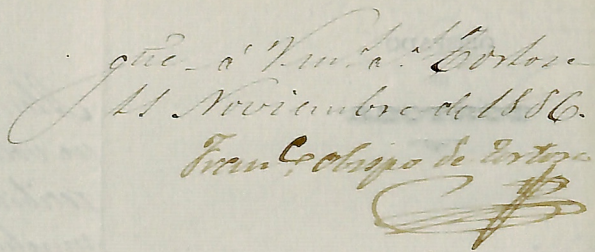 gue. á Vm. a. Tortosa
11 Noviembre de 1886.
Franco. obispo de Tortosa